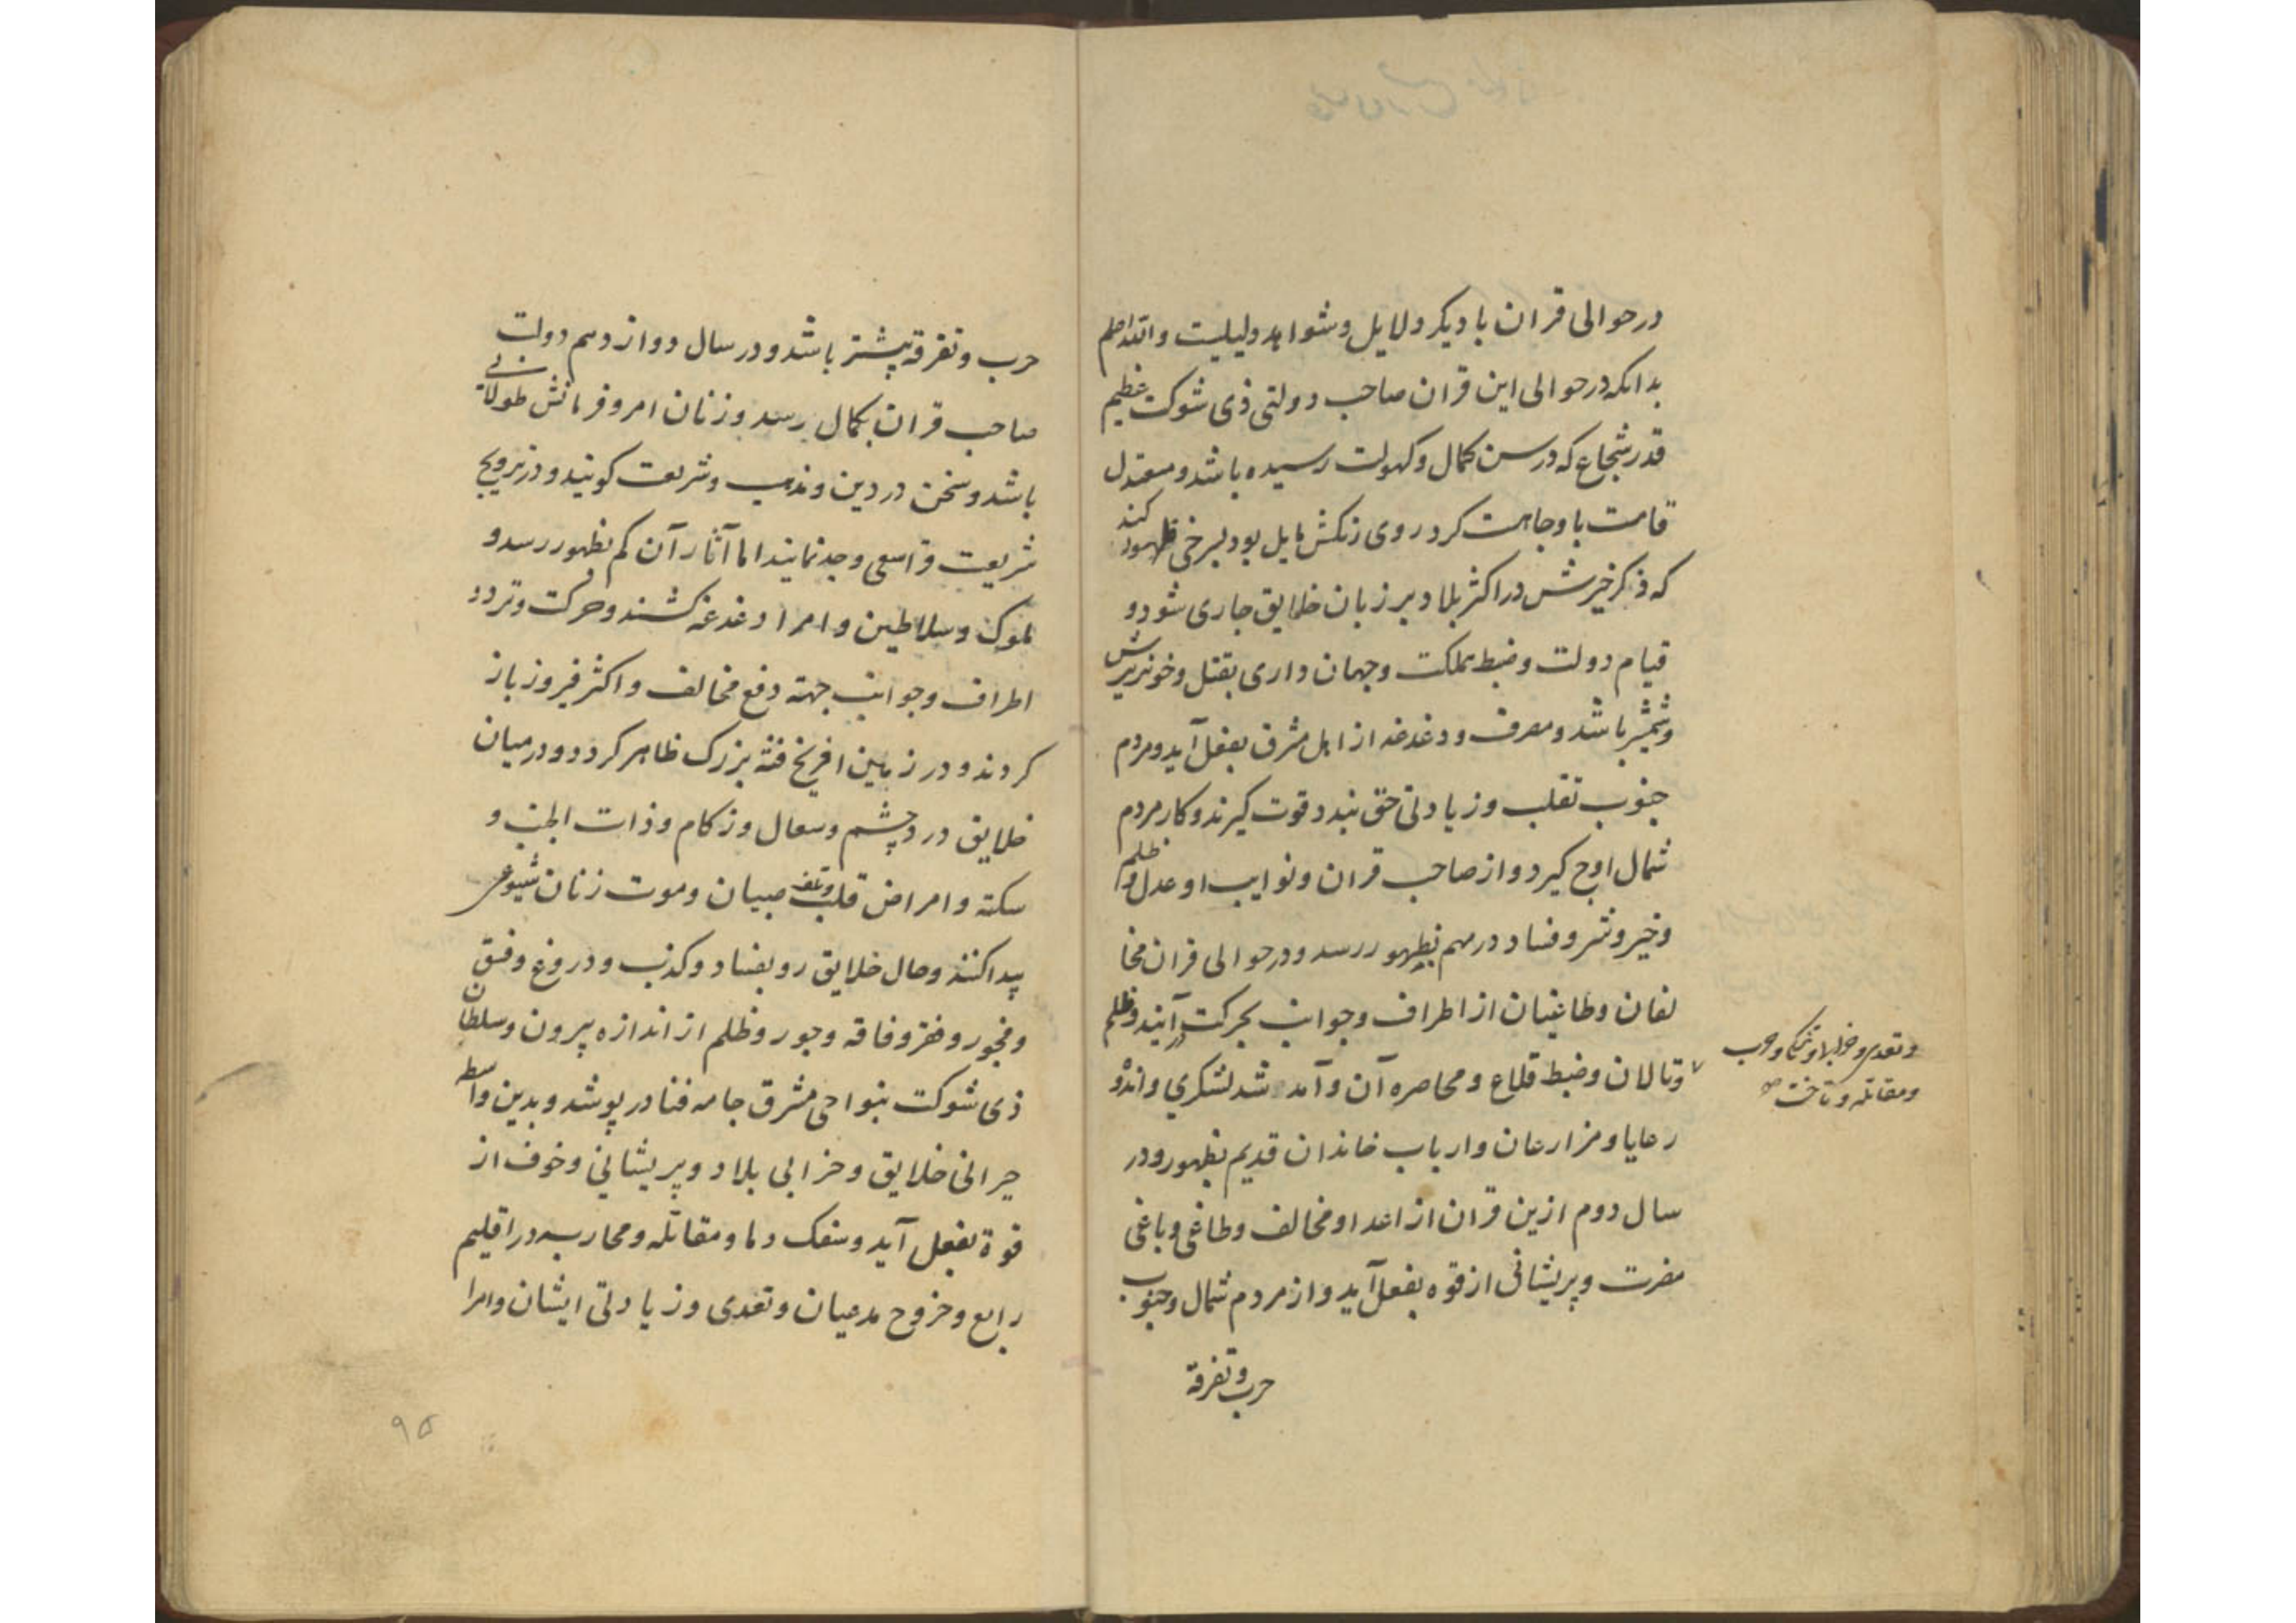 در حوالی قران با دیگر دلایل و شواهد دلیلیست والله اعلم
بدانکه در حوالی این قران صاحب دولتی ذی شوکت عظیم
قدر شجاع که در سن کمال و کهولت رسیده باشد و معتدل
قامت با وجاهت کرد روی رنکش مایل بود بسرخی ظهور کند
که ذکر خیرش در اکثر بلاد بر زبان خلایق جاری شود و
قیام دولت و ضبط مملکت و جهان داری بقتل و خونریزش
و شمشیر باشد و مصرف و دغدغه از اهل مشرق بفعل آید و مردم
جنوب تغلب و زیادتی قوت کیرند و کار مردم
شمال اوج کیرد و از صاحب قران و نوایب او عدل و ظلم
و خیر و شر و فساد در مهم بظهور رسد و در حوالی قران مخا
لفان و طاغیان از اطراف و جوانب بحرکت در آیند و ظلم
و تعدی و حرب
و مقاتله و تاخت صح
و تالان و ضبط قلاع و محاصره آن و آمد شد لشکری و اندوه
رعایا و مزارعان و ارباب خاندان قدیم بظهور و در
سال دوم ازین قران از اعدا و مخالف و طاغی و باغی
مضرت و پریشانی از قوه بفعل آید و از مردم شمال و جنوب
حرب و تفرقه
حرب و تفرقه پیشتر باشد و در سال دوازدهم دولت
صاحب قران بکمال رسد و زنان امر و فرمانش طولانی
باشد و سخن در دین و مذهب و شریعت کویند و در ترویج
شریعت قوانین سعی و جد نمایند اما آثار آن کم بظهور رسد و
ملوک و سلاطین و امرا دغدغه کشند و حرکت و تردد
اطراف و جوانب جهته دفع مخالف و اکثر فیروز باز
کردند و در زمین افرنج فتنه بزرک ظاهر کردد و در میان
خلایق درد چشم و سعال و زکام و ذات الجنب و
سکته و امراض قلب و تلف صبیان و موت زنان شیوعی
پیدا کنند و حال خلایق رو بفساد و کذب و دروغ و فسق
و فجور و فقر و فاقه و جور و ظلم از اندازه بیرون و سلطان
ذی شوکت بنواحی مشرق جامه فنا در پوشد و بدین واسطه
حیرانی خلایق و خرابی بلاد و پریشانی و خوف از
قوة بفعل آید و سفک دما و مقاتله و محاربه در اقلیم
رابع و خروج مدعیان و تعدی و زیادتی ایشان و امرا
۹۵